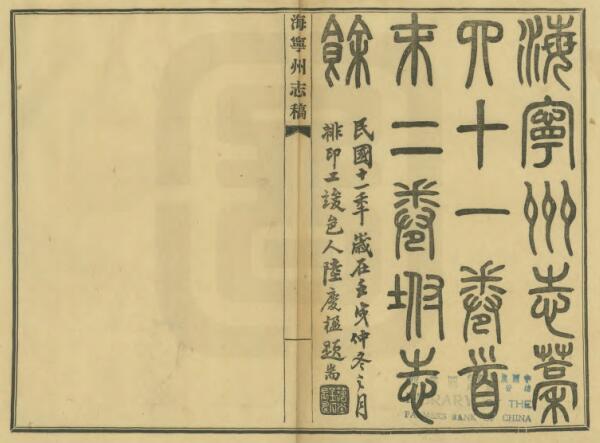 海寧州志藁
四十一卷首
末二卷坿志
餘
民國十一年歲在壬戌仲冬之月
排印工竣邑人陸慶楹題耑
海寧州志稿
LIBRARY OF THE
FARMERS BANK OF CHINA